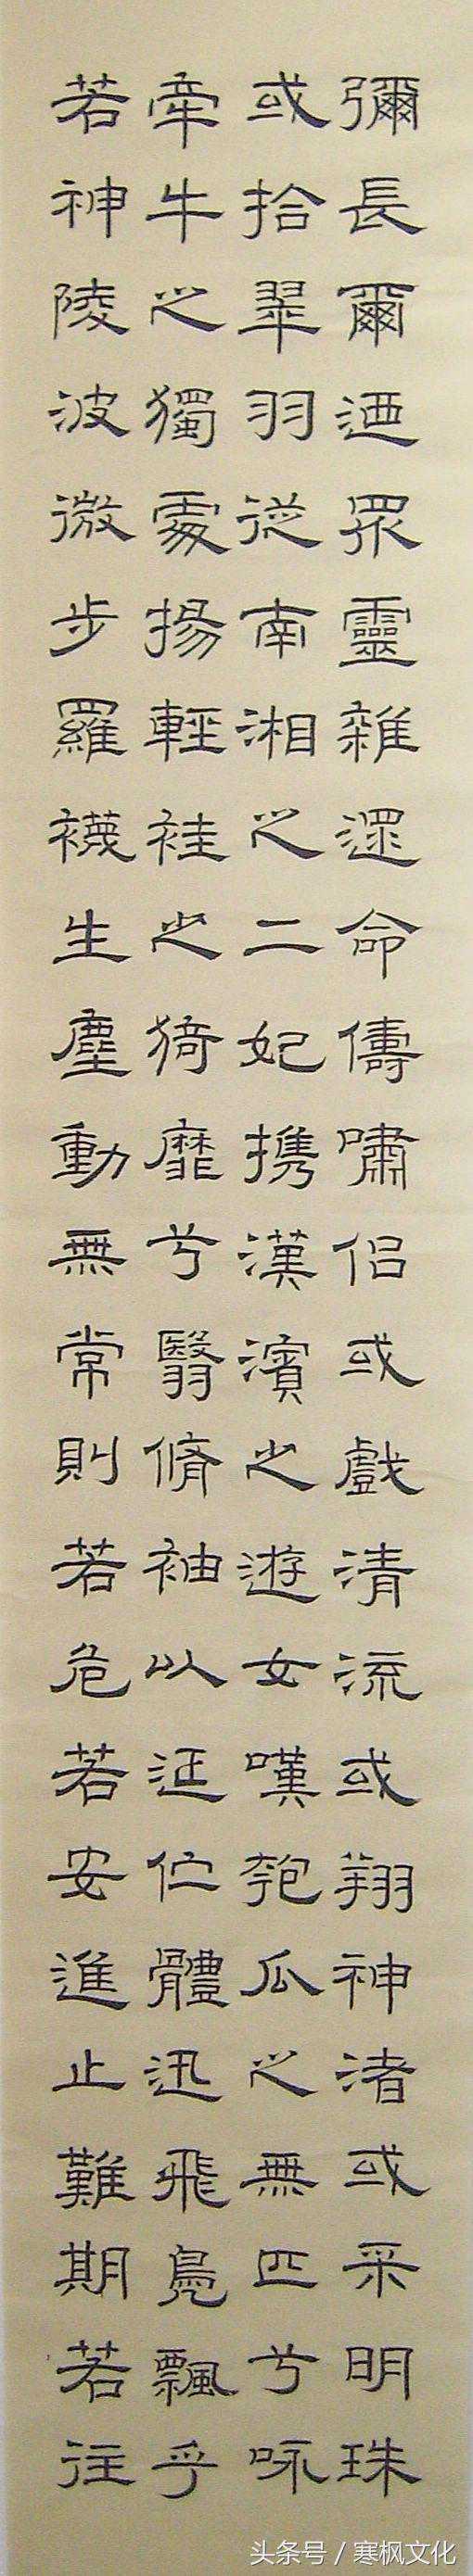 彌長爾迺眾靈雜遝命儔嘯侶或戲清流或翔神渚或采明珠
或拾翠羽從南湘之二妃携漢濱之遊女嘆匏瓜之無匹兮咏
牽牛之獨處揚輕袿之猗靡兮翳脩袖以延佇體迅飛鳧飄乎
若神陵波微步羅襪生塵動無常則若危若安進止難期若往
头条号 / 寒枫文化